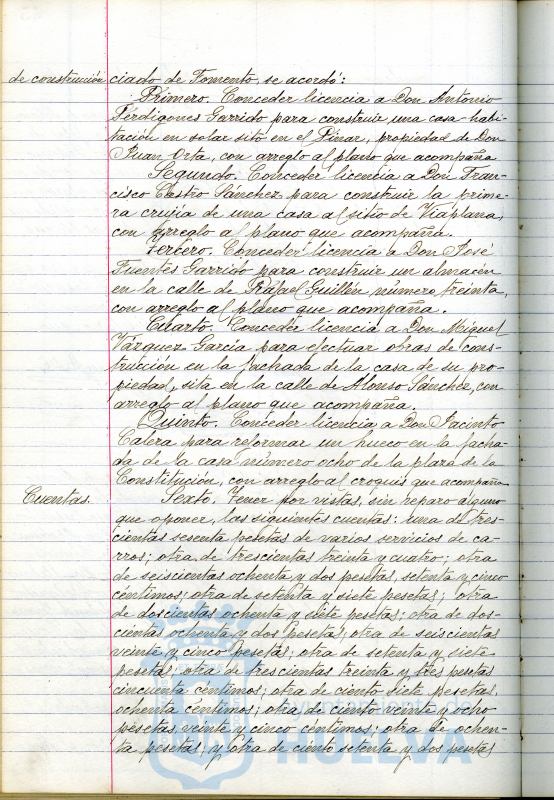 de construcción ciado de Fomento, se acordó:
Primero. Conceder licencia a Don Antonio
Perdigones Garrido para construir una casa habi-
tación en solar sito en el Pinar, propiedad de Don
Juan Orta, con arreglo al plano que acompaña
Segundo. Conceder licencia a Don Fran-
cisco Castro Sánchez para construir la prime-
ra crujia de una casa al sitio de Viaplana,
con arreglo al plano que acompaña.
Tercero. Conceder licencia a Don José
Fuentes Garrido para construir un almacén
en la calle de Rafael Guillén número treinta,
con arreglo al plano que acompaña.
Cuarto. Conceder licencia a Don Miguel
Vázquez García para efectuar obras de cons-
trucción en la fachada de la casa de su pro-
piedad, sita en la calle de Alonso Sánchez, con
arreglo al plano que acompaña.
Quinto. Conceder licencia a Don Jacinto
Calera para reformar un hueco en la facha-
da de la casa número ocho de la plaza de la
Constitución, con arreglo al croquis que acompaña
Cuentas. Sexto. Tener por vistas, sin reparo alguno
que oponer, las siguientes cuentas: una de tres-
cientas sesenta pesetas de varios servicios de ca-
rros; otra de trescientas treinta y cuatro; otra
de seiscientas ochenta y dos pesetas, setenta y cinco
céntimos; otra de setenta y siete pesetas; otra
de doscientas ochenta y siete pesetas; otra de dos-
cientas ochenta y dos pesetas; otra de seiscientas
veinte y cinco pesetas; otra de setenta y siete
pesetas; otra de trescientas treinta y tres pesetas
cincuenta céntimos; otra de ciento siete pesetas,
ochenta céntimos; otra de ciento veinte y ocho
pesetas, veinte y cinco céntimos; otra de ochen-
ta pesetas; y otra de ciento setenta y dos pesetas
HUELVA